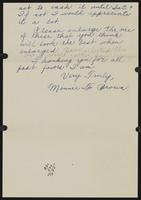 not to cash it until Sat. ?
If not I would appreciate
it a lot.
Please enlarge the one
of these that you think
will look the best when
enlarged.
Thanking you for all
past favors I am
Very Truly,
Minnie Brown